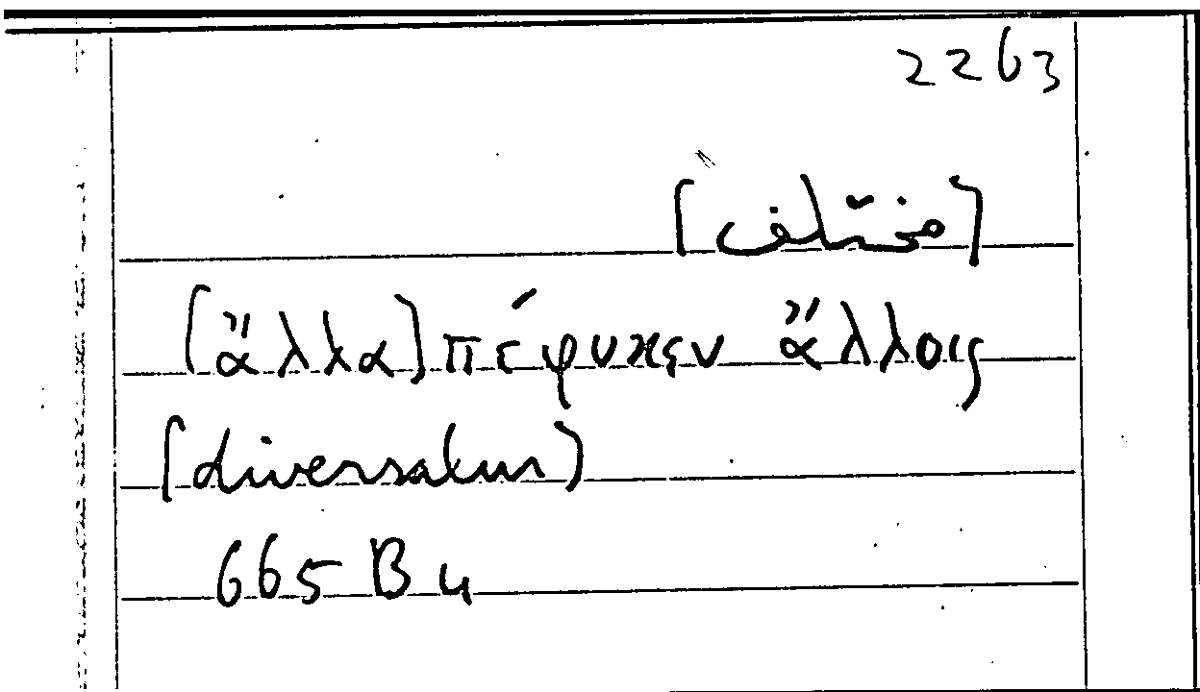 2263
[مختلف]
[ἄλλα] πέφυκεν ἄλλοις
[diversatur]
665 B 4